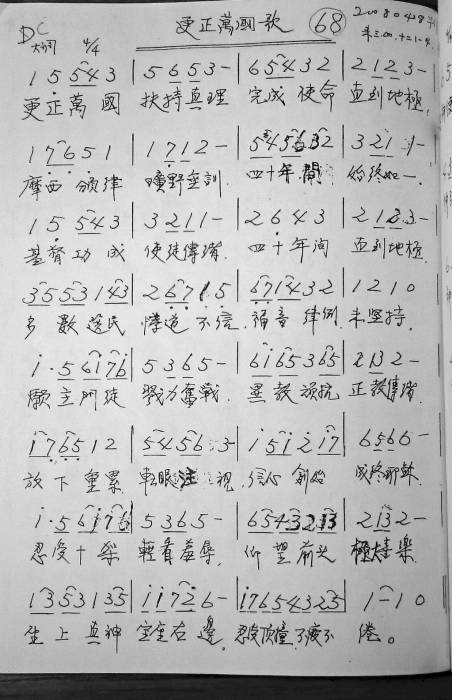 DC 更正萬國歌 68 20080428
大調 4/4
1 5 5 4 3 | 5 6 5 3 - | 6 5 4 3 2 | 2 1 2 3 -
更正萬國 扶持真理 完成使命 直到地極
1 7 6 5 1 | 1 7 1 2 - | 5 4 5 6 3 2 | 3 2 1 1 -
摩西頒律 曠野垂訓 四十年間 始終如一
1 5 5 4 3 | 3 2 1 1 - | 2 6 4 3 | 2 1 2 3 -
基督功成 使徒傳播 四十年間 直到地極
3 5 5 3 1 4 3 | 2 6 7 1 5 | 6 7 1 4 3 2 | 1 2 1 0
多數選民 悖道不信 福音律例 未堅持
i · 5 6 i 7 6 | 5 3 6 5 - | 6 i 6 5 3 6 5 | 2 1 3 2 -
願主門徒 戮力奮戰 異教頑抗 正教傳播
i 7 6 5 1 2 | 5 4 5 6 3 - | i 5 i 2 i 7 | 6 5 6 6 -
放下重累 轉眼注視 信心創始 成終耶穌
i · 5 6 i 7 6 | 5 3 6 5 - | 6 5 4 3 2 1 3 | 2 1 3 2 -
忍受十架 輕看羞辱 仰望前頭 極大喜樂
1 3 5 3 1 3 5 | i i 7 2 6 - | i 7 6 5 4 3 2 5 | 1 - 1 0
坐上真神 宝座右邊 忍受頂撞不疲不 倦。